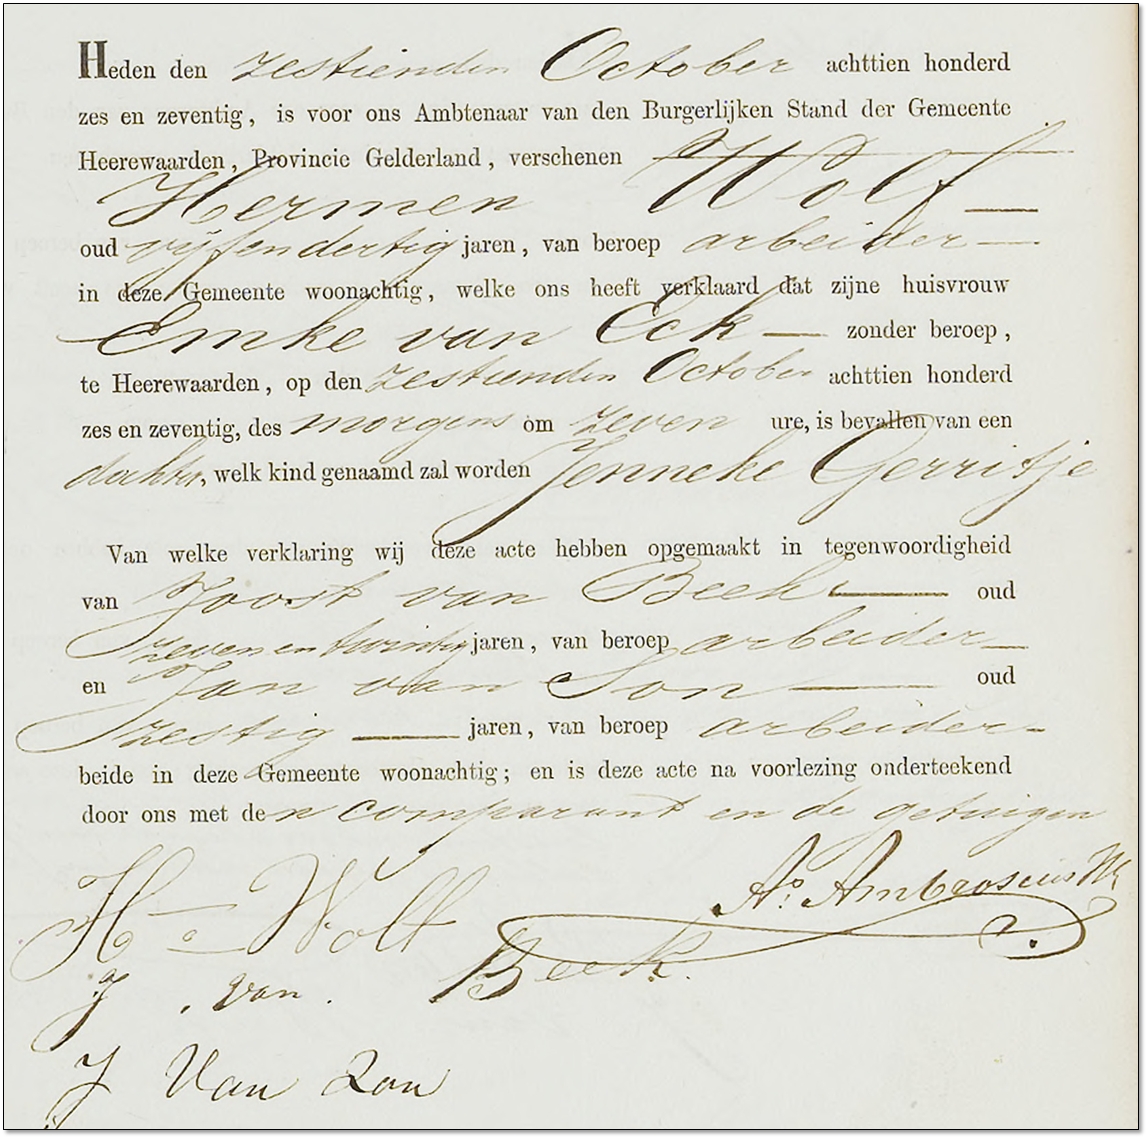 Heden den zestienden October achttien honderd
zes en zeventig, is voor ons Ambtenaar van den Burgerlijken Stand der Gemeente
Heerewaarden, Provincie Gelderland, verschenen
Hermen Wolf
oud vijfendertig jaren, van beroep arbeider
in deze Gemeente woonachtig, welke ons heeft verklaard dat zijne huisvrouw
Emke van Eck zonder beroep,
te Heerewaarden, op den zestienden October achttien honderd
zes en zeventig, des morgens om zeven ure, is bevallen van een
dochter, welk kind genaamd zal worden Jenneke Gerritje
Van welke verklaring wij deze acte hebben opgemaakt in tegenwoordigheid
van Joost van Beek oud
zevenentwintig jaren, van beroep arbeider
en Jan van Son oud
zestig jaren, van beroep arbeider
beide in deze Gemeente woonachtig; en is deze acte na voorlezing onderteekend
door ons met den comparant en de getuigen
H Wolf
As. Ambrosius
J. van. Beek.
J Van Zon